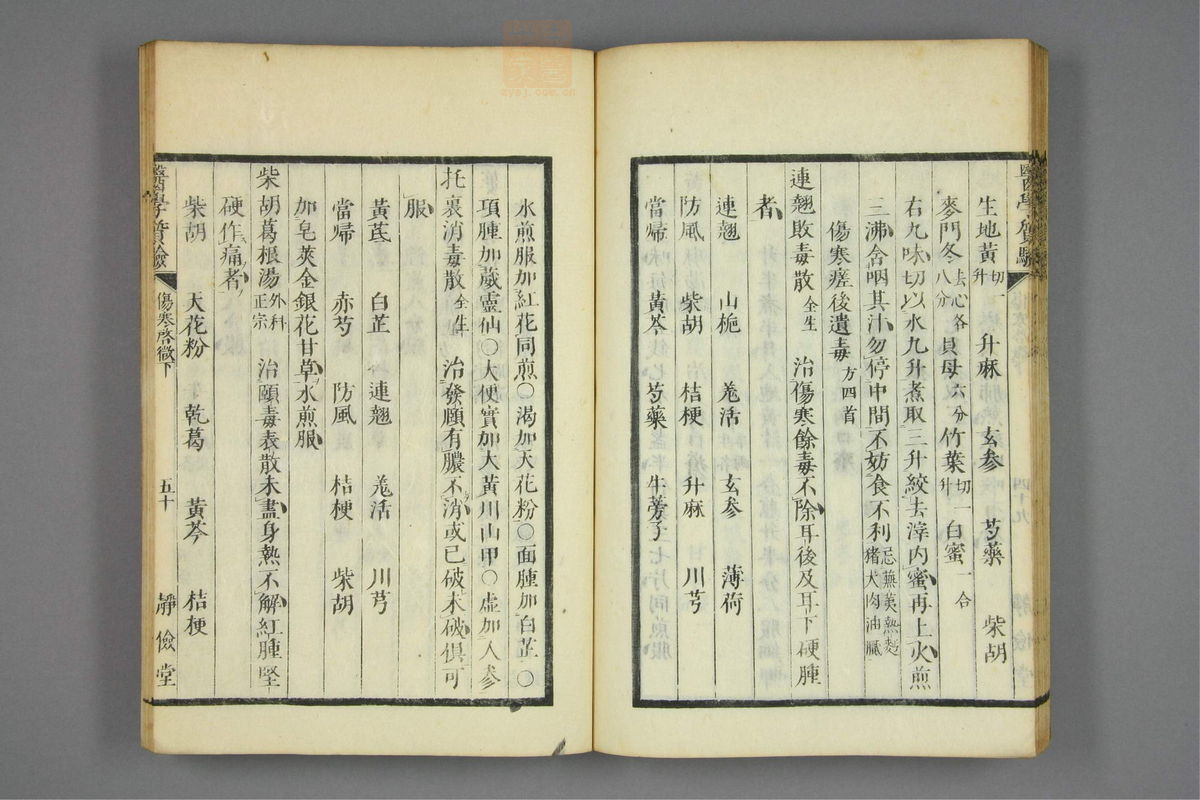 醫學質驗
四十九
生地黃切一升 升麻 玄参 芍藥 柴胡
麥門冬去心各八分 貝母六分 竹葉切一升 白蜜一合
右九味切以水九升煮取三升絞去滓內蜜再上火煎
三沸含咽其汁勿停中間不妨食不利忌蕪荑熱麪猪犬肉油膩
傷寒瘥後遺毒方四首
連翹敗毒散全生 治傷寒餘毒不除耳後及耳下硬腫
者
連翹 山梔 羗活 玄参 薄荷
防風 柴胡 桔梗 升麻 川芎
當帰 黃芩 芍藥 牛蒡子
水煎服加紅花同煎○渴加天花粉○面腫加白芷○
項腫加葳靈仙○大便實加大黃川山甲○虛加人参
托裏消毒散全生 治發頤有膿不消或已破未破俱可
服
黃茋 白芷 連翹 羗活 川芎
當帰 赤芍 防風 桔梗 柴胡
加皂莢金銀花甘草水煎服
柴胡葛根湯外科正宗 治頤毒表散未盡身熱不解紅腫堅
硬作痛者
柴胡 天花粉 乾葛 黃芩 桔梗
醫學質驗 傷寒啓微下 五十 靜儉堂